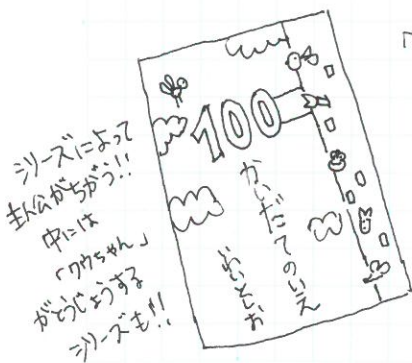 シリーズによって
主人公がちがう!!
中には
「クウちゃん」
がとうじょうする
シリーズも!!
100
かいだてのいえ
いわいとしお
「